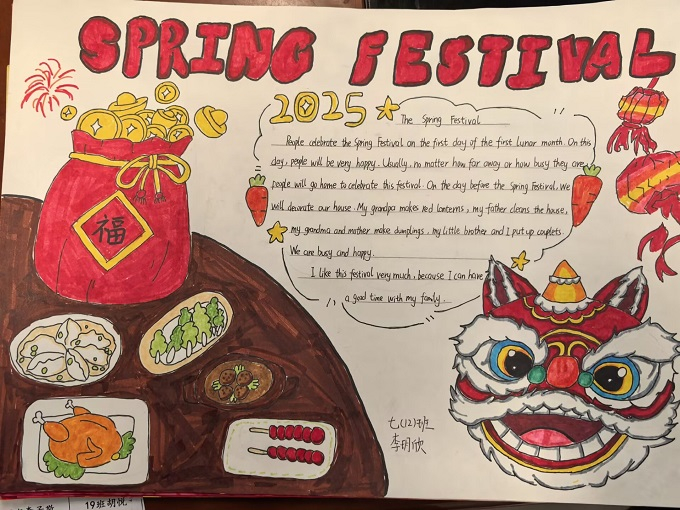 SPRING FESTIVAL
2025
The Spring Festival
People celebrate the Spring Festival on the first day of the first lunar month. On this
day, people will be very happy. Usually, no matter how far away or how busy they are,
people will go home to celebrate this festival. On the day before the Spring Festival, we
will decorate our house. My grandpa makes red lanterns, my father cleans the house,
my grandma and mother make dumplings, my little brother and I put up couplets.
We are busy and happy.
I like this festival very much, because I can have
a good time with my family.
福
七(12)班
李明欣
19班胡悦